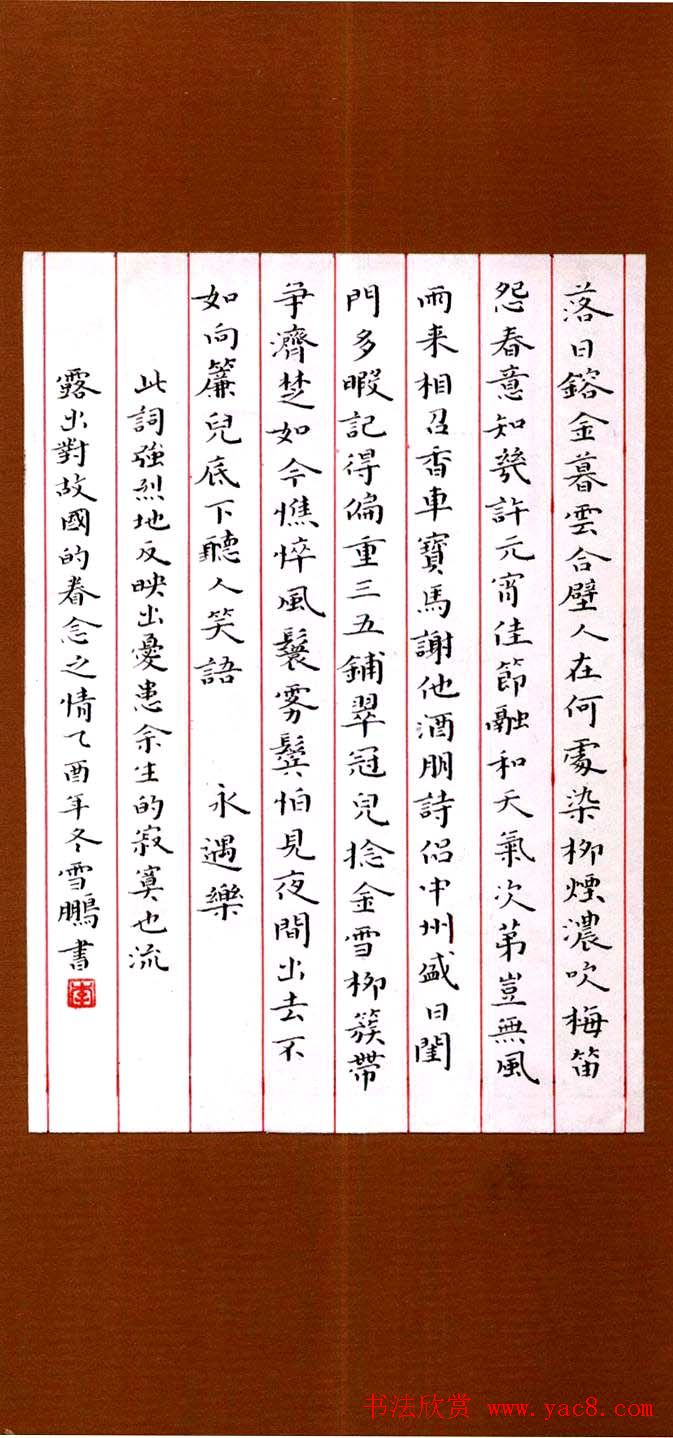 落日鎔金暮雲合壁人在何處染柳煙濃吹梅笛
怨春意知幾許元宵佳節融和天氣次第豈無風
雨来相召香車寶馬謝他酒朋詩侣中州盛日閨
門多暇記得偏重三五鋪翠冠兒捻金雪柳簇帶
争濟楚如今憔悴風鬟雾鬢怕見夜間出去不
如向簾兒底下聽人笑語 永遇樂
此詞強烈地反映出憂患余生的寂寞也流
露出對故國的眷念之情乙酉年冬雪鵬書
李
书法欣赏 www.yac8.com